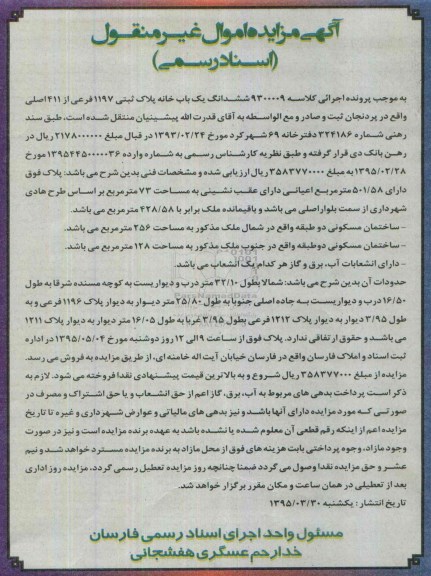 آگهی مزایده اموال غیر منقول
(اسناد رسمی)
به موجب پرونده اجرائی کلاسه ۹۳۰۰۰۰۹ ششدانگ یک باب خانه پلاک ثبتی ۱۱۹۷ فرعی از ۴۱۱ اصلی
واقع در پردنجان ثبت و صادر و مع الواسطه به آقای قدرت الله پیشینیان منتقل شده است، طبق سند
رهنی شماره ۳۲۴۱۸۶ دفترخانه ۶۹ شهرکرد مورخ ۱۳۹۳/۰۲/۲۴ در قبال مبلغ ۲۱۷۸۰۰۰۰۰۰ ریال در
رهن بانک دی قرار گرفته و طبق نظریه کارشناس رسمی به شماره وارده ۱۳۹۵۴۴۵۰۰۰۰۰۳۶ مورخ
۱۳۹۵/۰۲/۲۸ به مبلغ ۳۵۸۳۷۷۰۰۰۰ ریال ارزیابی شده و مشخصات فنی بدین شرح می باشد: پلاک فوق
دارای ۵۰۱/۵۸ مترمربع اعیانی دارای عقب نشینی به مساحت ۷۳ مترمربع بر اساس طرح هادی
شهرداری از سمت بلوار اصلی می باشد و باقیمانده ملک برابر با ۴۲۸/۵۸ مترمربع می باشد.
- ساختمان مسکونی دو طبقه واقع در شمال ملک مذکور به مساحت ۲۵۶ مترمربع می باشد.
- ساختمان مسکونی دوطبقه واقع در جنوب ملک مذکور به مساحت ۱۲۸ مترمربع می باشد.
- دارای انشعابات آب، برق و گاز هر کدام یک انشعاب می باشد.
حدودات آن بدین شرح می باشد: شمالا بطول ۳۲/۱۰ متر درب و دیواریست به کوچه مسنده شرقا به طول
۱۶/۵۰ درب و دیواریست به جاده اصلی جنوبا به طول ۲۵/۸۰ متر دیوار به دیوار پلاک ۱۱۹۶ فرعی و به
طول ۳/۹۵ دیوار به دیوار پلاک ۱۲۱۲ فرعی بطول ۳/۹۵ غربا به طول ۱۶/۰۵ متر دیوار به دیوار پلاک ۱۲۱۱
می باشد و حقوق ارتفاقی ندارد. پلاک فوق از ساعت ۹ الی ۱۲ روز دوشنبه مورخ ۱۳۹۵/۰۵/۰۴ در اداره
ثبت اسناد و املاک فارسان واقع در فارسان خیابان آیت اله خامنه ای، از طریق مزایده به فروش می رسد.
مزایده از مبلغ ۳۵۸۳۷۷۰۰۰ ریال شروع و به بالاترین قیمت پیشنهادی نقدا فروخته می شود. لازم به
ذکر است پرداخت بدهی های مربوط به آب، برق، گاز اعم از حق انشعاب و یا حق اشتراک و مصرف در
صورتی که مورد مزایده دارای آنها باشد و نیز بدهی های مالیاتی و عوارض شهرداری و غیره تا تاریخ
مزایده اعم از اینکه رقم قطعی آن معلوم شده یا نشده باشد به عهده برنده مزایده است و نیز در صورت
وجود مازاد، وجوه پرداختی بابت هزینه های فوق از محل مازاد به برنده مزایده مسترد خواهد شد و نیم
عشر و حق مزایده نقدا وصول می گردد ضمنا چنانچه روز مزایده تعطیل رسمی گردد، مزایده روز اداری
بعد از تعطیلی در همان ساعت و مکان مقرر برگزار خواهد شد.
تاریخ انتشار: یکشنبه ۱۳۹۵/۰۳/۳۰
مسئول واحد اجرای اسناد رسمی فارسان
خدارحم عسگری هفشجانی